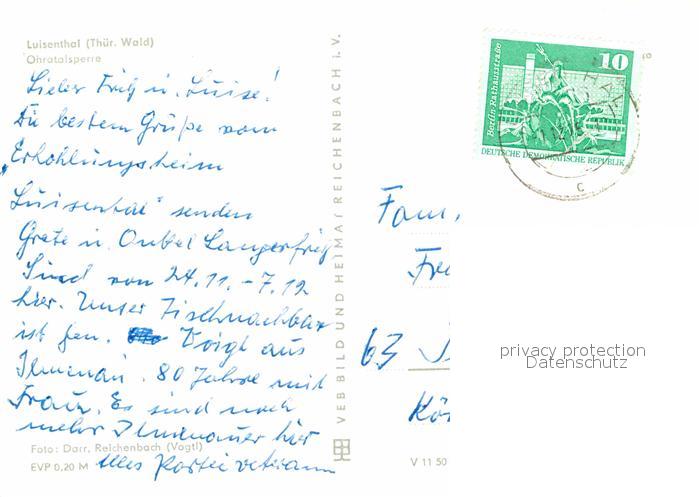 Luisenthal (Thür. Wald)
Ohratalsperre
Lieber Fritz u. Luise!
Die besten Grüße vom
„Erhohlungsheim
Luisental" senden
Grete u. Onkel Langerfritz
Sind vom 24.11. - 7.12
hier. Unser Tischnachbar
ist Gen. Voigt aus
Ilmenau. 80 Jahre mit
Frau. Es sind noch
mehr Ilmenauer hier
Alles Parteiveteranen
Foto: Darr, Reichenbach (Vogtl)
EVP 0,20 M
VEB BILD UND HEIMAT REICHENBACH i. V.
V 11 50
Berlin-Rathausstraße
10
DEUTSCHE DEMOKRATISCHE REPUBLIK
C
Fam.
Fr
63
Kö
privacy protection
Datenschutz